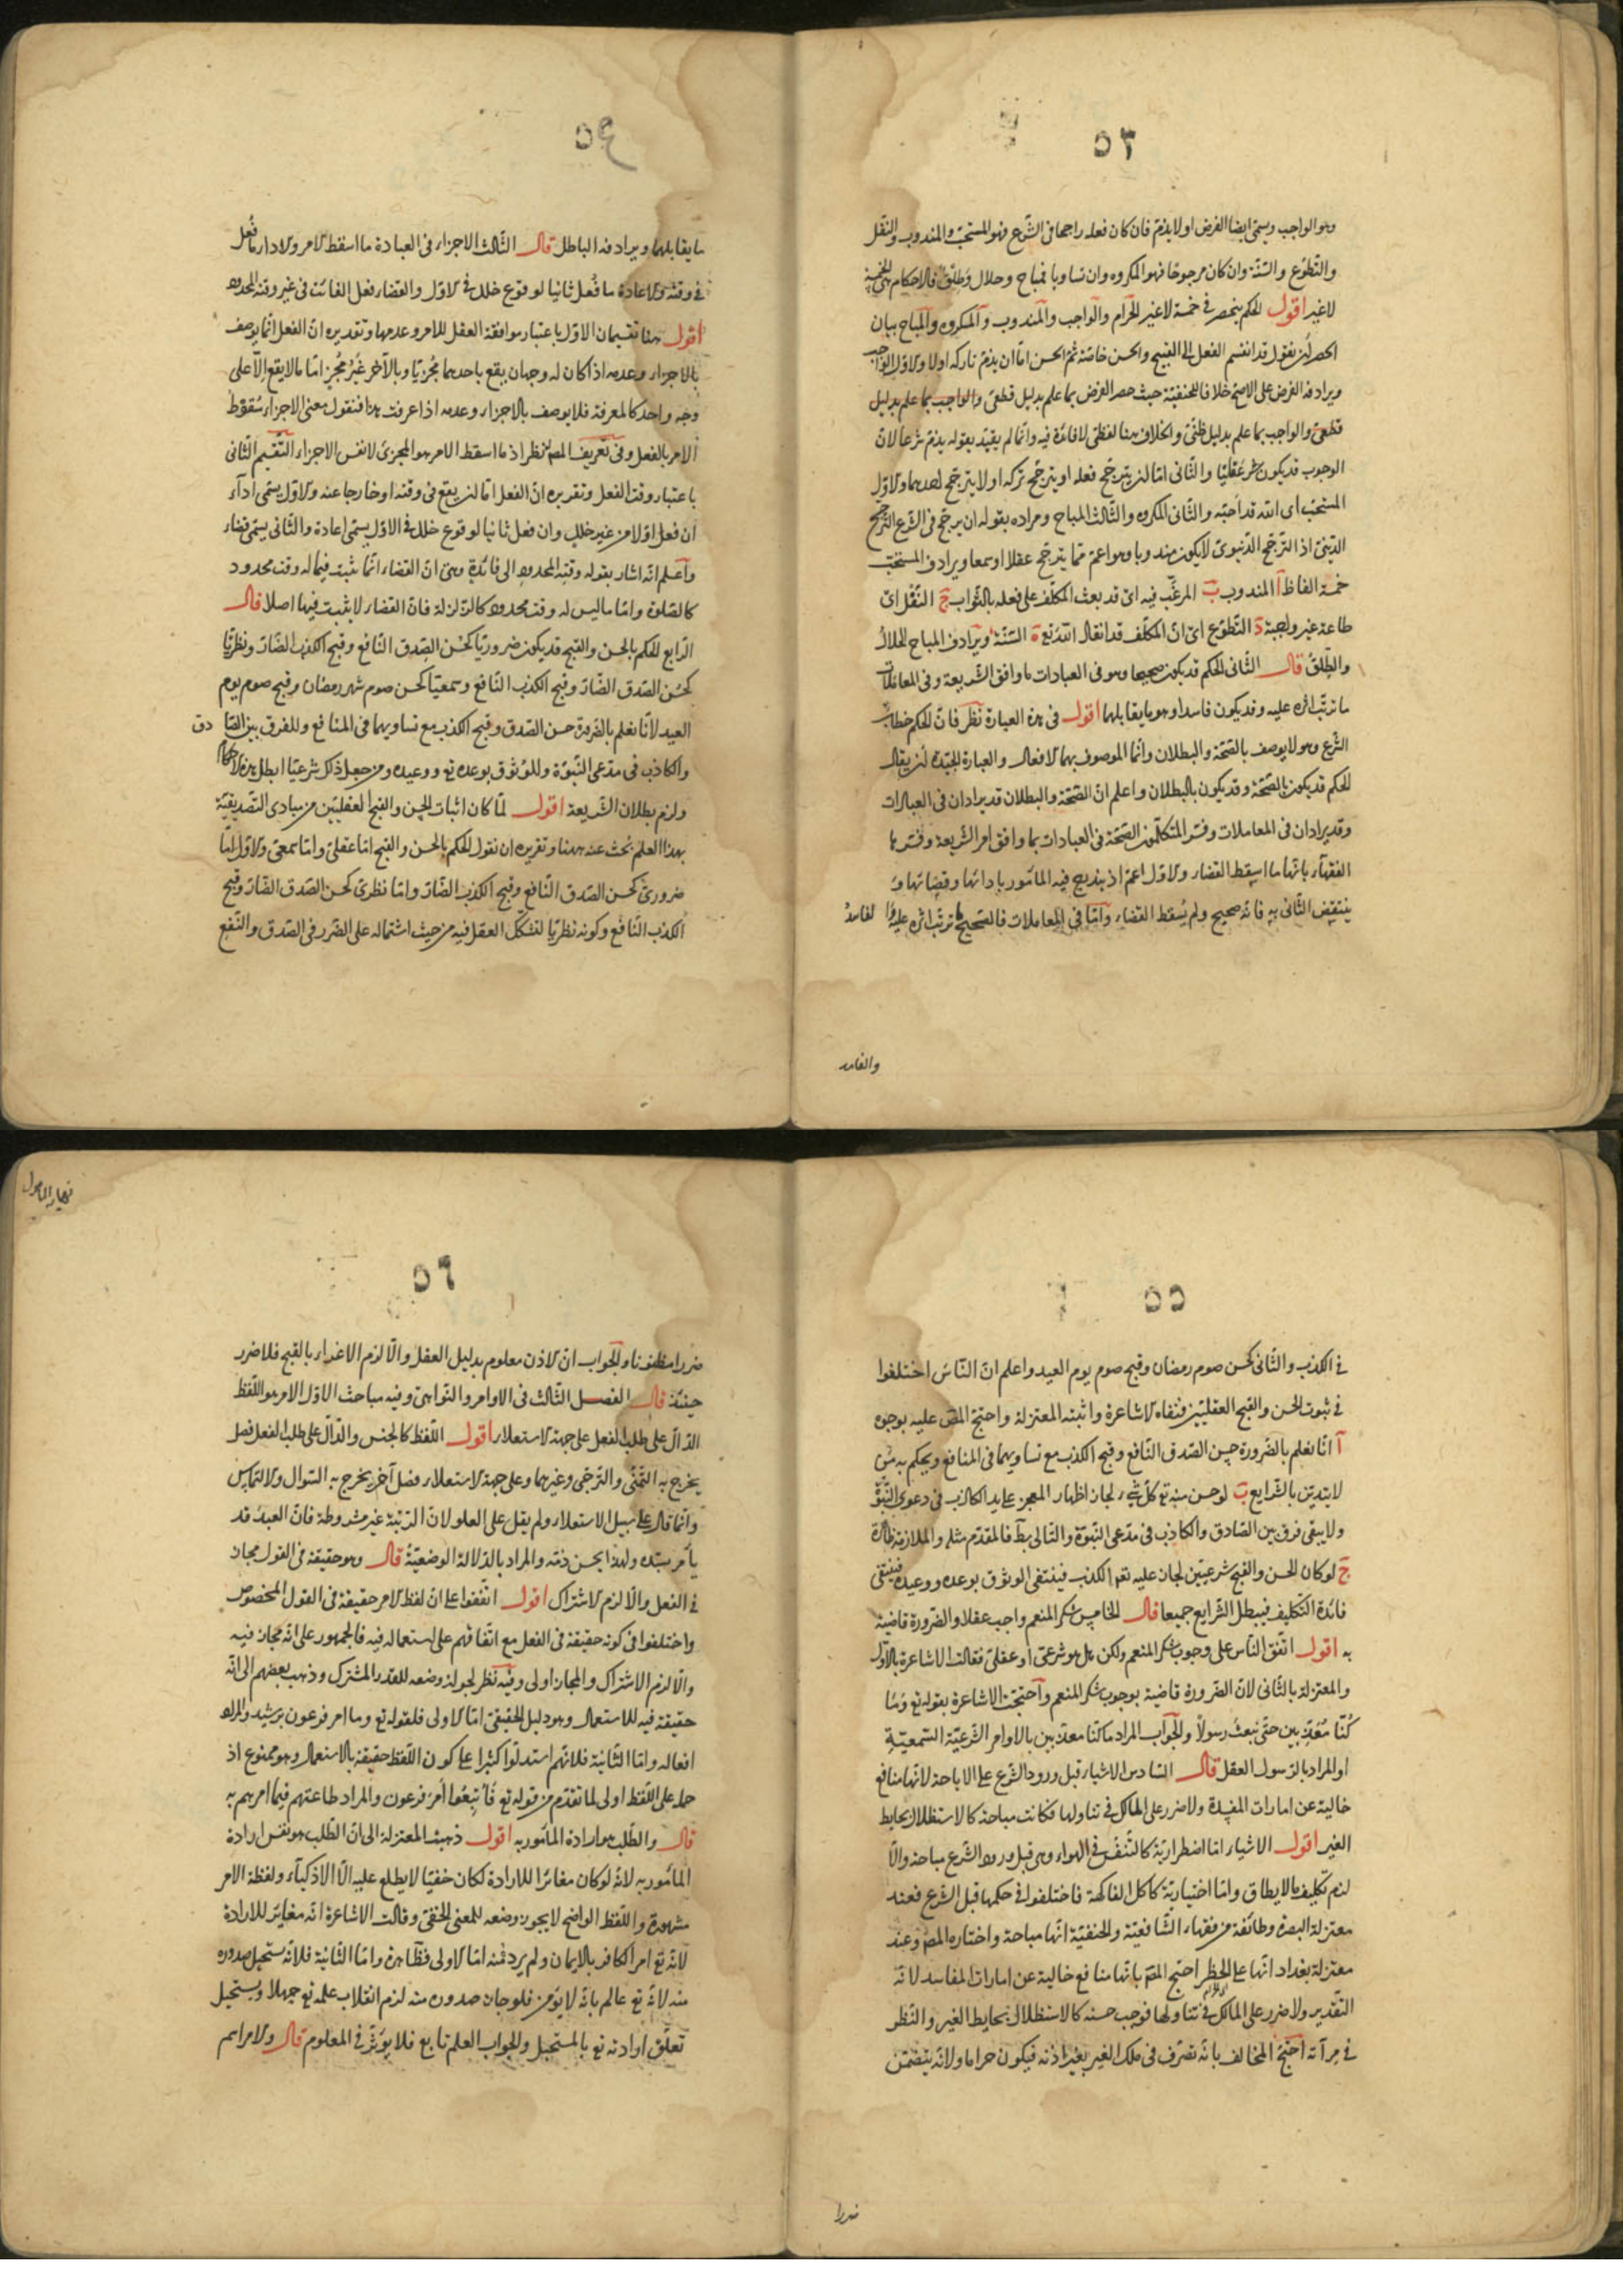 ٥٣
وهو الواجب ويسمّى ايضا الفرض او لا يذمّ فان كان فعله راجحا فى الشّرع فهو المستحبّ والمندوب والنّفل
والتّطوّع والسّنّة وان كان مرجوحا فهو المكروه وان تساويا فمباح وحلال وطلق فالاحكام هى الخمسة
لا غير اقول الحكم ينحصر فى خمسة لا غير الحرام والواجب والمندوب والمكروه والمباح بيان
الحصر ان نقول قد انقسم الفعل الى القبيح والحسن خاصّة ثمّ الحسن امّا ان يذمّ تاركه او لا والاوّل الواجب
ويرادفه الفرض على الاصحّ خلافا للحنفيّة حيث حصر الفرض بما علم بدليل قطعىّ والواجب بما علم بدليل
قطعىّ والواجب بما علم بدليل ظنّىّ والخلاف هنا لفظىّ لا فائدة فيه وانّما لم يقيّد بقوله يذمّ شرعا لانّ
الوجوب قد يكون شرعقليّا والثّانى امّا ان يترجّح فعله او يترجّح تركه او لا يترجّح احدهما والاوّل
المستحبّ اى الله قد احبّه والثّانى المكروه والثّالث المباح ومراده بقوله ان يرجّح فى الشّرع التّرجّح
الدّينىّ اذ التّرجّح الدّنيوىّ لا يكون مندوبا وهو اعمّ ممّا يترجّح عقلا او سمعا ويرادف المستحبّ
خمسة الفاظ آ المندوب ب المرغّب فيه اى قد بعث المكلّف على فعله بالثّواب ج النّفل اى
طاعة غير واجبة د التّطوّع اى انّ المكلّف قد انقاد الله تع ه السّنّة ويرادف المباح الحلال
والطّلق قال الثّانى الحكم قد يكون صحيحا وهو فى العبادات ما وافق الشّريعة وفى المعاملات
ما ترتّب اثره عليه وقد يكون فاسدا وهو ما يقابلهما اقول فى هذه العبارة نظر فانّ الحكم خطاب
الشّرع وهو لا يوصف بالصّحّة والبطلان وانّما الموصوف بهما الافعال والعبارة الجيّدة ان يقال
الحكم قد يكون بالصّحّة وقد يكون بالبطلان واعلم انّ الصّحّة والبطلان قد يرادان فى العبادات
وقد يرادان فى المعاملات وفسّر المتكلّمون الصّحّة فى العبادات بما وافق امر الشّريعة وفسّرها
الفقهاء بانّها ما اسقط القضاء والاوّل اعمّ اذ يندرج فيه المأمور بادائها وقضائها و
ينتقض الثّانى به فانّه صحيح ولم يسقط القضاء وامّا فى المعاملات فالصّحيح ما ترتّب اثره عليه والفاسد
والفاسد
٥٤
ما يقابلهما ويرادفه الباطل قال الثّالث الاجزاء فى العبادة ما اسقط الامر والاداء ما فُعل
فى وقته والاعادة ما فُعل ثانيا لوقوع خلل فى الاوّل والقضاء فعل الفائت فى غير وقته المحدود
اقول هنا تقسيمان الاوّل باعتبار موافقة العقل للامر وعدمها وتقديره انّ الفعل انّما يوصف
بالاجزاء وعدمه اذا كان له وجهان يقع باحدهما مُجزيّا وبالآخر غير مُجزٍ امّا ما لا يقع الّا على
وجه واحد كالمعرفة فلا يوصف بالاجزاء وعدمه اذا عرفت هذا فنقول معنى الاجزاء سُقوط
الامر بالفعل وفى تعريف المصنف نظر اذ ما اسقط الامر هو المجزئ لا نفس الاجزاء التّقسيم الثّانى
باعتبار وقت الفعل وتقريره انّ الفعل امّا ان يقع فى وقته او خارجا عنه والاوّل يسمّى اداء
ان فعل اوّلا من غير خلل وان فعل ثانيا لوقوع خلل فى الاوّل يسمّى اعادة والثّانى يسمّى قضاء
واعلم انّه اشار بقوله وقته المحدود الى فائدة وهى انّ القضاء انّما يثبت فيما له وقت محدود
كالصّلوة وامّا ما ليس له وقت محدود كالزّلزلة فانّ القضاء لا يثبت فيها اصلا قال
الرّابع الحكم بالحسن والقبح قد يكون ضروريّا كحُسن الصّدق النّافع وقبح الكذب الضّارّ ونظريّا
كحُسن الصّدق الضّارّ وقبح الكذب النّافع وسمعيّا كحسن صوم شهر رمضان وقبح صوم يوم
العيد لانّا نعلم بالضّرورة حسن الصّدق وقبح الكذب مع تساويهما فى المنافع وللفرق بين الصّا دق
والكاذب فى مدّعى النّبوّة وللوثوق بوعده تع ووعيده ومن جعل ذلك شرعيّا ابطل هذه الاحكام
ولزم بطلان الشّريعة اقول لمّا كان اثبات الحسن والقبح العقليّين من مبادى التّصديقيّة
بهذا العلم بحث عنه ههنا وتقريره ان نقول الحكم بالحسن والقبح امّا عقلىّ وامّا سمعىّ والاوّل امّا
ضرورىّ كحسن الصّدق النّافع وقبح الكذب الضّارّ وامّا نظرىّ كحسن الصّدق الضّارّ وقبح
الكذب النّافع وكونه نظريّا لتشكّك العقل فيه من حيث اشتماله على الضّرر فى الصّدق والنّفع
٥٥
فى الكذب والثّانى كحسن صوم رمضان وقبح صوم يوم العيد واعلم انّ النّاس اختلفوا
فى ثبوت الحسن والقبح العقليّين فنفاه الاشاعرة واثبته المعتزلة واحتجّ المص عليه بوجوه
آ انّا نعلم بالضّرورة حسن الصّدق النّافع وقبح الكذب مع تساويهما فى المنافع ويحكم به من
لا يتديّن بالشّرايع ب لو حسن منه تع كلّ شىء لجاز اظهار المعجز على يد الكاذب فى دعوى النّبوّة
ولا يبقى فرق بين الصّادق والكاذب فى مدّعى النّبوّة والتّالى بط فالمقدّم مثله والملازمة ظاهرة
ج لو كان الحسن والقبح شرعيّين لجاز عليه تعه الكذب فينتفى الوثوق بوعده ووعيده فينتفى
فائدة التّكليف فيبطل الشّرايع جميعا قال الخامس شكر المنعم واجب عقلا والضّرورة قاضية
به اقول اتّفق النّاس على وجوب شكر المنعم ولكن هل هو شرعىّ او عقلىّ فقالت الاشاعرة بالاوّل
والمعتزلة بالثّانى لانّ الضّرورة قاضية بوجوب شكر المنعم واحتجّت الاشاعرة بقوله تع وَمَا
كُنّا مُعَذّبين حتّى نَبعثَ رسولاً والجواب المراد ما كنّا معذّبين بالاوامر الشّرعيّة السّمعيّة
او المراد بالرّسول العقل قال السّادس الاشياء قبل ورود الشّرع على الاباحة لانّها منافع
خالية عن امارات المفسدة ولا ضرر على المالك فى تناولها فكانت مباحة كالاستظلال بحايط
الغير اقول الاشياء امّا اضطراريّة كالتّنفّس فى الهواء وهى قبل ورود الشّرع مباحة والّا
لزم تكليف ما لا يطاق وامّا اختياريّة كاكل الفاكهة فاختلفوا فى حكمها قبل الشّرع فعند
معتزلة البصرة وطائفة من فقهاء الشّافعيّة والحنفيّة انّها مباحة واختاره المص وعند
معتزلة بغداد انّها على الحظر احتجّ المص بانّها منافع خالية عن امارات المفاسد لانّه
التّقدير ولا ضرر على المالك فى تناولها فوجب حسنه كالاستظلال بحايط الغير والنّظر
فى مرآته احتجّ المخالف بانّه تصرّف فى ملك الغير بغير اذنه فيكون حراما ولانّه يتضمّن
ضررا
٥٦
ضررا مظنونا والجواب انّ الاذن معلوم بدليل العقل والّا لزم الاغراء بالقبح فلا ضرر
حينئذ قال الفصل الثّالث فى الاوامر والنّواهى وفيه مباحث الاوّل الامر هو اللّفظ
الدّالّ على طلب الفعل على جهة الاستعلاء اقول اللّفظ كالجنس والدّالّ على طلب الفعل فصل
يخرج به التّمنّى والتّرجّى وغيرهما وعلى جهة الاستعلاء فصل آخر يخرج به السّؤال والالتماس
وانّما قال على سبيل الاستعلاء ولم يقل على العلو لانّ الرّتبة غير مشروطة فانّ العبد قد
يأمر سيّده ولهذا يحسن ذمّه والمراد بالدّلالة الوضعيّة قال وهو حقيقة فى القول مجاز
فى الفعل والّا لزم الاشتراك اقول اتّفقوا على انّ لفظ الامر حقيقة فى القول المخصوص
واختلفوا فى كونه حقيقة فى الفعل مع اتّفاقهم على استعماله فيه فالجمهور على انّه مجاز فيه
والّا لزم الاشتراك والمجاز اولى وفيه نظر لجواز وضعه للقدر المشترك وذهب بعضهم الى انّه
حقيقة فيه للاستعمال وهو دليل الحقيقة امّا الاولى فلقوله تع وما امر فرعون برشيد والمراد
افعاله وامّا الثّانية فلانّهم استدلّوا كثيرا على كون اللّفظ حقيقة بالاستعمال وهو ممنوع اذ
حمله على اللّفظ اولى لما تقدّم من قوله تع فَاتّبَعُوا أمرَ فرعون والمراد طاعتهم فيما امرهم به
قال والطّلب هو ارادة المأمور به اقول ذهبت المعتزلة الى انّ الطّلب هو نفس ارادة
المأمور به لانّه لو كان مغائرا للارادة لكان خفيّا لا يطلع عليه الّا الاذكياء ولفظة الامر
مشهورة واللّفظ الواضح لا يجوز وضعه للمعنى الخفىّ وقالت الاشاعرة انّه مغاير للارادة
لانّه تع امر الكافر بالايمان ولم يرد منه امّا الاولى فظاهرة وامّا الثّانية فلانّه يستحيل صدوره
منه لانّه تع عالم بانّه لا يؤمن فلو جاز صدوره منه لزم انقلاب علمه تع جهلا ويستحيل
تعلّق ارادته تع بالمستحيل والجواب العلم تابع فلا يؤثّر فى المعلوم قال والامر اسم